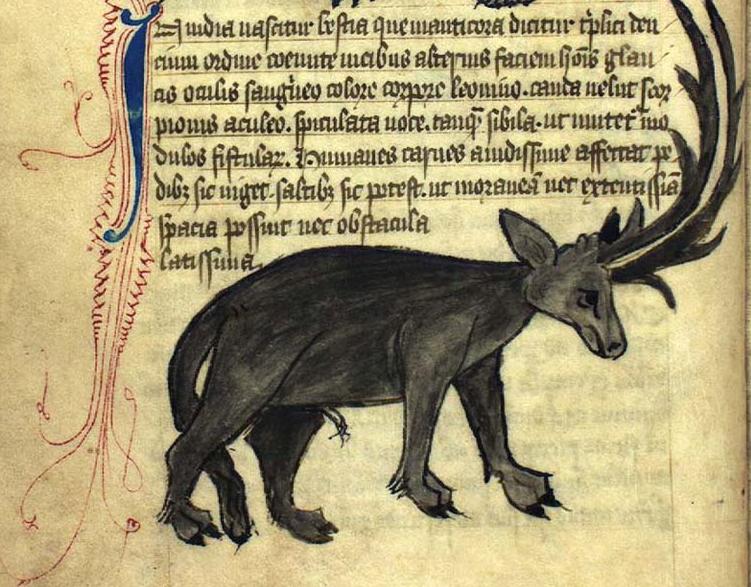 IN india nascitur bestia que manticora dicitur tͥplici den
cium ordine coeunte uicibus alternis faciem hōis glau
cis oculis sanguīeo colore corpore leonino. cauda uelut scor
pionis aculeo. spiculata uoce. tanqͣ sibila. ut imitet᷑ mo
dulos fistulaꝝ. Humanes carnes auidissime affectat pe
dibꝫ sic uiget. saltibꝫ sic potest. ut morari eā nec extentissīa
spacia possint nec obstacula
latissima.